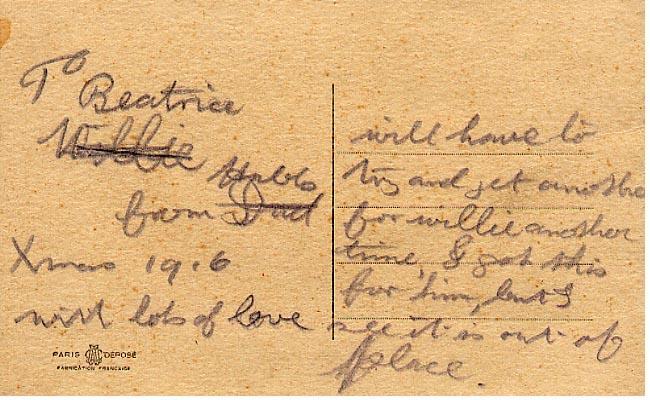 To
Beatrice
Willie
from Dad
Xmas 1916
with lots of love
will have to
try and get anothe
for willie another
time, I got this
for him, but I
see it is out of
place.
PARIS DEPOSÉ
FABRICATION FRANÇAISE